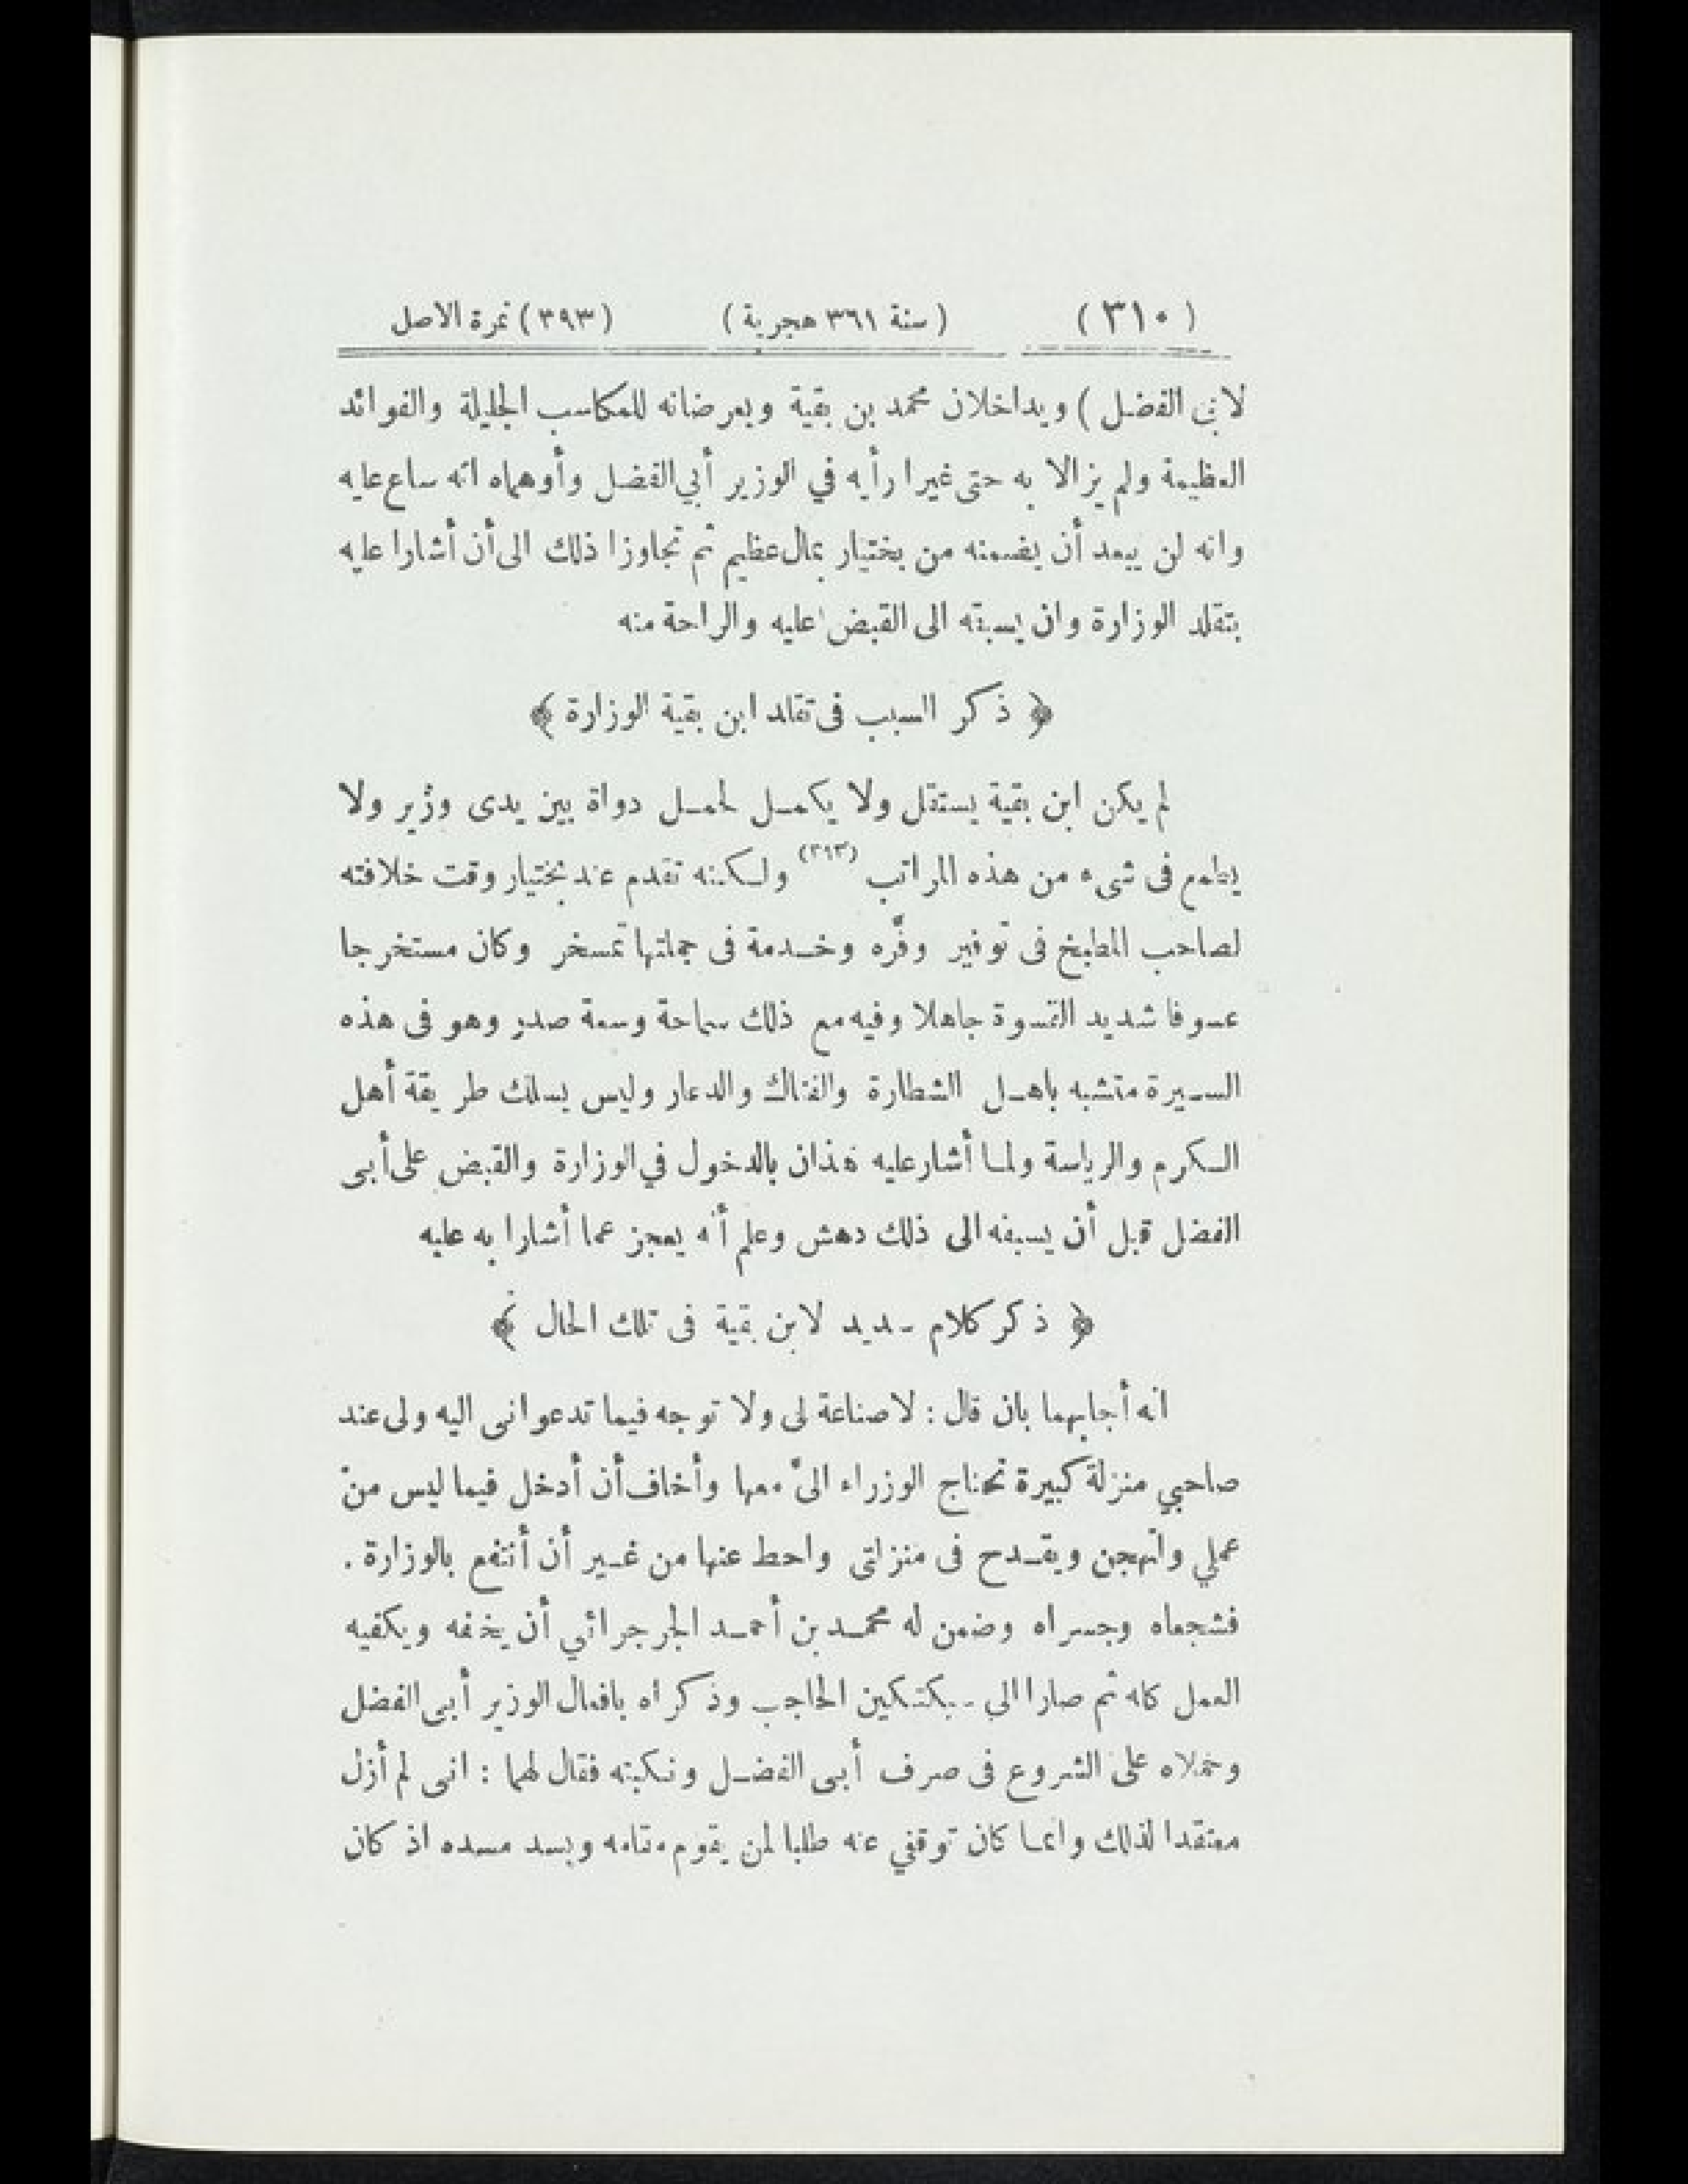 (٣١٠) (سنة ٣٦١ هجرية) (٣٩٣) نمرة الاصل
لابى الفضل) ويداخلان محمد بن بقية ويعرضانه للمكاسب الجليلة والفوائد
العظيمة ولم يزالا به حتى غيرا رأيه في الوزير أبي الفضل وأوهماه انه ساع عليه
وانه لن يبعد أن يضمنه من بختيار بمال عظيم ثم تجاوزا ذلك الى أن أشارا عليه
بتقلد الوزارة وان يسبقه الى القبض عليه والراحة منه
﴿ ذكر السبب فى تقلد ابن بقية الوزارة ﴾
لم يكن ابن بقية يستقل ولا يكمـل لحمـل دواة بين يدى وزير ولا
يطمع فى شىء من هذه المراتب (٣٩٣) ولـكنه تقدم عند بختيار وقت خلافته
لصاحب المطبخ فى توفير وفّره وخـدمة فى جملتها تمسخر وكان مستخرجا
عسوفا شديد القسوة جاهلا وفيه مع ذلك سماحة وسعة صدر وهو فى هذه
السـيرة متشبه باهـل الشطارة والفتاك والدعار وليس يسلك طريقة أهل
الـكرم والرياسة ولمـا أشار عليه هذان بالدخول في الوزارة والقبض على أبى
الفضل قبل أن يسبقه الى ذلك دهش وعلم أنه يعجز عما أشارا به عليه
﴿ ذكر كلام سديد لابن بقية فى تلك الحال ﴾
انه أجابهما بان قال : لا صناعة لى ولا توجه فيما تدعوانى اليه ولى عند
صاحبي منزلة كبيرة تحتاج الوزراء الىّ معها وأخاف أن أدخل فيما ليس من
عملي واتهجن ويقـدح فى منزلتى واحط عنها من غـير أن أنتفع بالوزارة .
فشجعاه وجسراه وضمن له محمـد بن أحمـد الجرجرائي أن يخفه ويكفيه
العمل كله ثم صارا الي سبكتكين الحاجب وذكراه بافعال الوزير أبى الفضل
وحملاه على الشروع فى صرف أبى الفضـل ونـكبته فقال لهما : انى لم أزل
معتقدا لذلك وانمـا كان توقفي عنه طلبا لمن يقوم مقامه ويسد مسده اذ كان